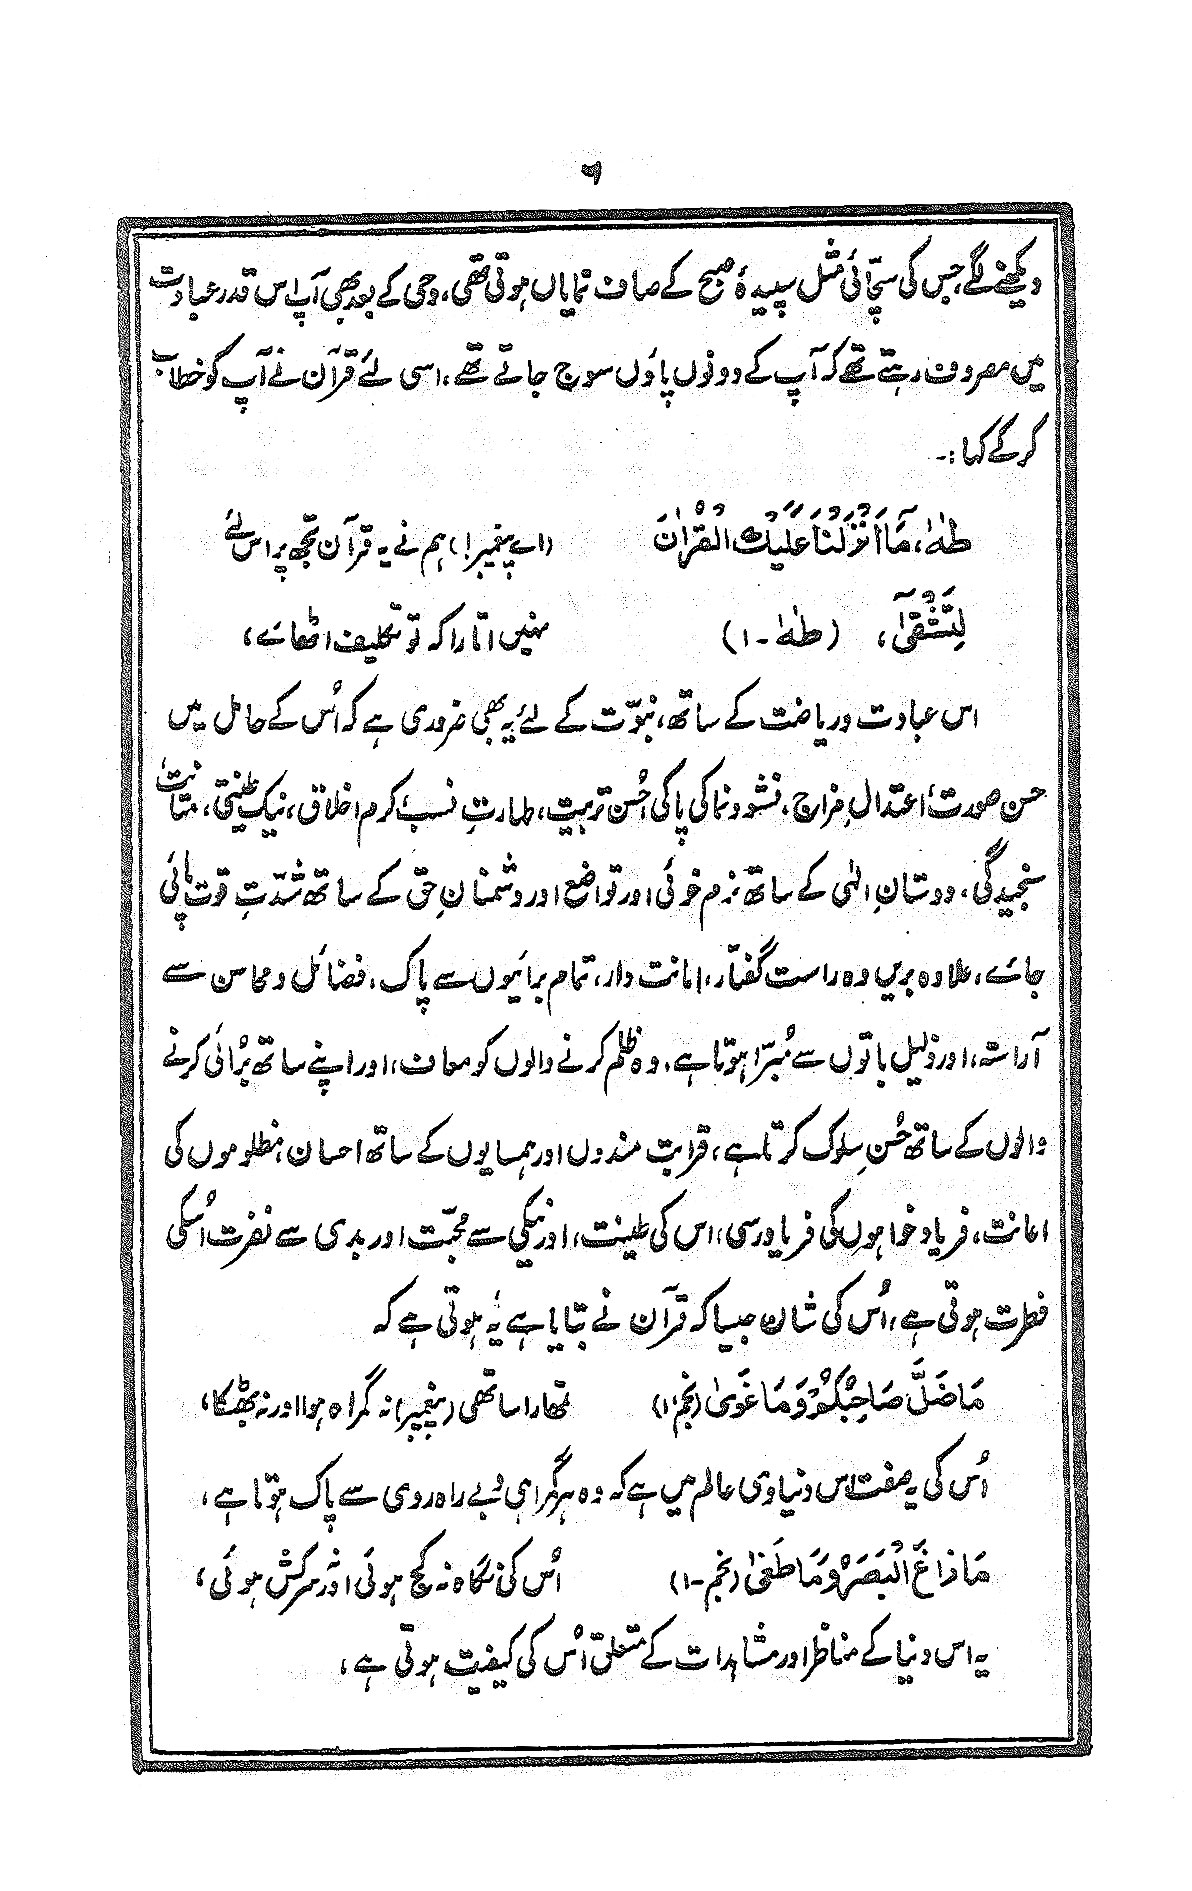 ۶
دیکھنے لگے جس کی سچائی مثل سپیدۂ صبح کے صاف نمایاں ہوتی تھی، وحی کے بعد بھی آپ اس قدر عبادت
میں مصروف رہتے تھے کہ آپ کے دونوں پاؤں سوج جاتے تھے، اسی لئے قرآن نے آپ کو خطاب
کر کے کہا :۔
طٰہٰ، مَآ اَنْزَلْنَا عَلَیْكَ الْقُرْاٰنَ (اے پیغمبر!) ہم نے یہ قرآن تجھ پر اس لئے
لِتَشْقٰٓی، (طٰہٰ۔۱) نہیں اتارا کہ تو تکلیف اٹھائے،
اس عبادت و ریاضت کے ساتھ، نبوّت کے لئے یہ بھی ضروری ہے کہ اُس کے حامل میں
حسن صورت، اعتدالِ مزاج، نشو و نما کی پاکی، حُسن تربیت، طہارتِ نسب، کرم اخلاق، نیک طینتی، متانت،
سنجیدگی، دوستانِ الٰہی کے ساتھ نرم خوئی اور تواضع اور دشمنانِ حق کے ساتھ شدّتِ قوت پائی
جائے، علاوہ بریں وہ راست گفتار، امانت دار، تمام برائیوں سے پاک، فضائل و محاسن سے
آراستہ، اور ذلیل باتوں سے مُبرّا ہوتا ہے، وہ ظلم کرنے والوں کو معاف، اور اپنے ساتھ بُرائی کرنے
والوں کے ساتھ حُسنِ سلوک کرتا ہے، قرابت مندوں اور ہمسایوں کے ساتھ احسان، مظلوموں کی
اعانت، فریاد خواہوں کی فریاد رسی، اس کی طینت، اور نیکی سے محبّت اور بدی سے نفرت اُسکی
فطرت ہوتی ہے، اُس کی شان جیسا کہ قرآن نے بتایا ہے یہ ہوتی ہے کہ
مَا ضَلَّ صَاحِبُكُمْ وَمَا غَوٰی (نجم۔۱) تمھارا ساتھی (پیغمبر) نہ گمراہ ہوا اور نہ بھٹکا،
اُس کی یہ صفت اس دنیاوی عالم میں ہے کہ وہ ہر گمراہی و بے راہ روی سے پاک ہوتا ہے،
مَا زَاغَ الْبَصَرُ وَمَا طَغٰی (نجم۔۱) اُس کی نگاہ نہ کج ہوئی اور نہ سرکش ہوئی،
یہ اس دنیا کے مناظر اور مشاہدات کے متعلق اُس کی کیفیت ہوتی ہے،